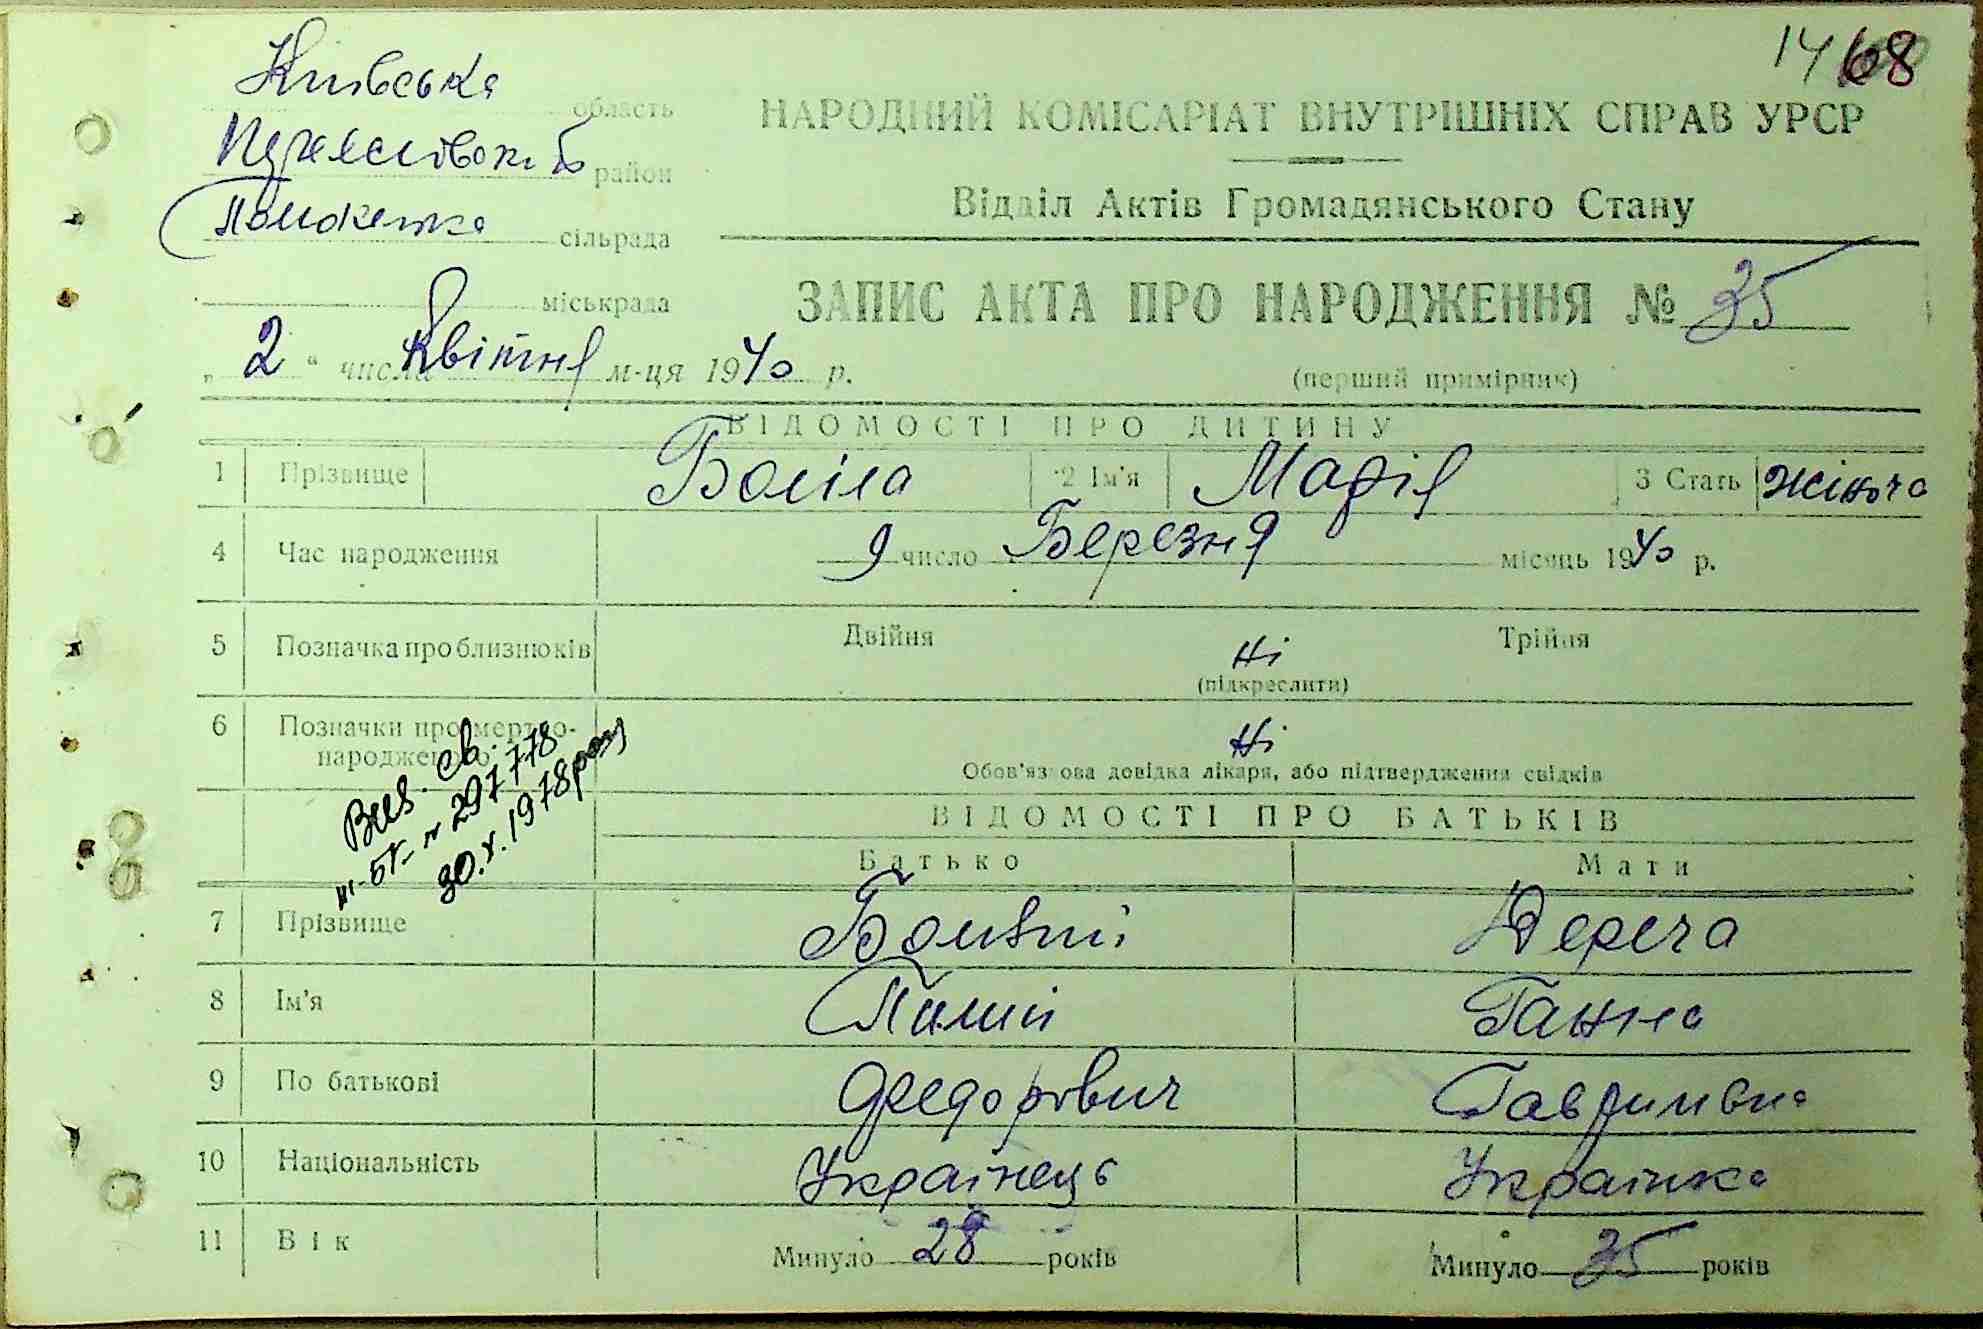 14 68
Київська область
НАРОДНИЙ КОМІСАРІАТ ВНУТРІШНІХ СПРАВ УРСР
район
Відділ Актів Громадянського Стану
сільрада
міськрада
ЗАПИС АКТА ПРО НАРОДЖЕННЯ № 35
„ 2 “ числа Квітня м-ця 1940 р.
(перший примірник)
ВІДОМОСТІ ПРО ДИТИНУ
1 Прізвище 2 Ім'я Марія 3 Стать жіноча
4 Час народження 9 число Березня місяць 1940 р.
5 Позначка про близнюків Двійня Ні Трійня
(підкреслити)
6 Позначки про мертво-
народженого Ні
Обов'язкова довідка лікаря, або підтвердження свідків
св.
№ 297778
30.X.1978 року
ВІДОМОСТІ ПРО БАТЬКІВ
Батько Мати
7 Прізвище Дереча
8 Ім'я Пилип Ганна
9 По батькові Федорович Гаврилівна
10 Національність Українець Українка
11 Вік Минуло 28 років Минуло 35 років